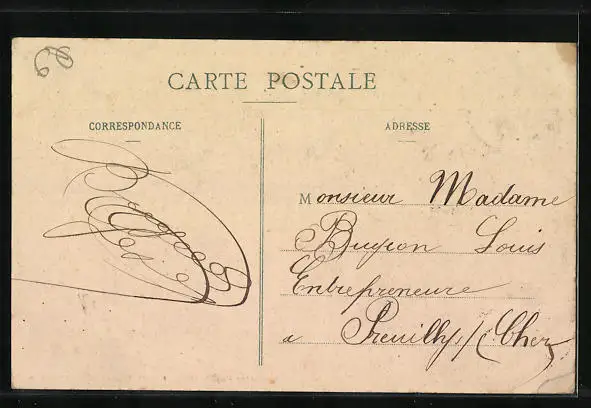 CARTE POSTALE
CORRESPONDANCE
ADRESSE
Monsieur Madame
Buyron Louis
Entrepreneure
a Preuilly s/ Cher